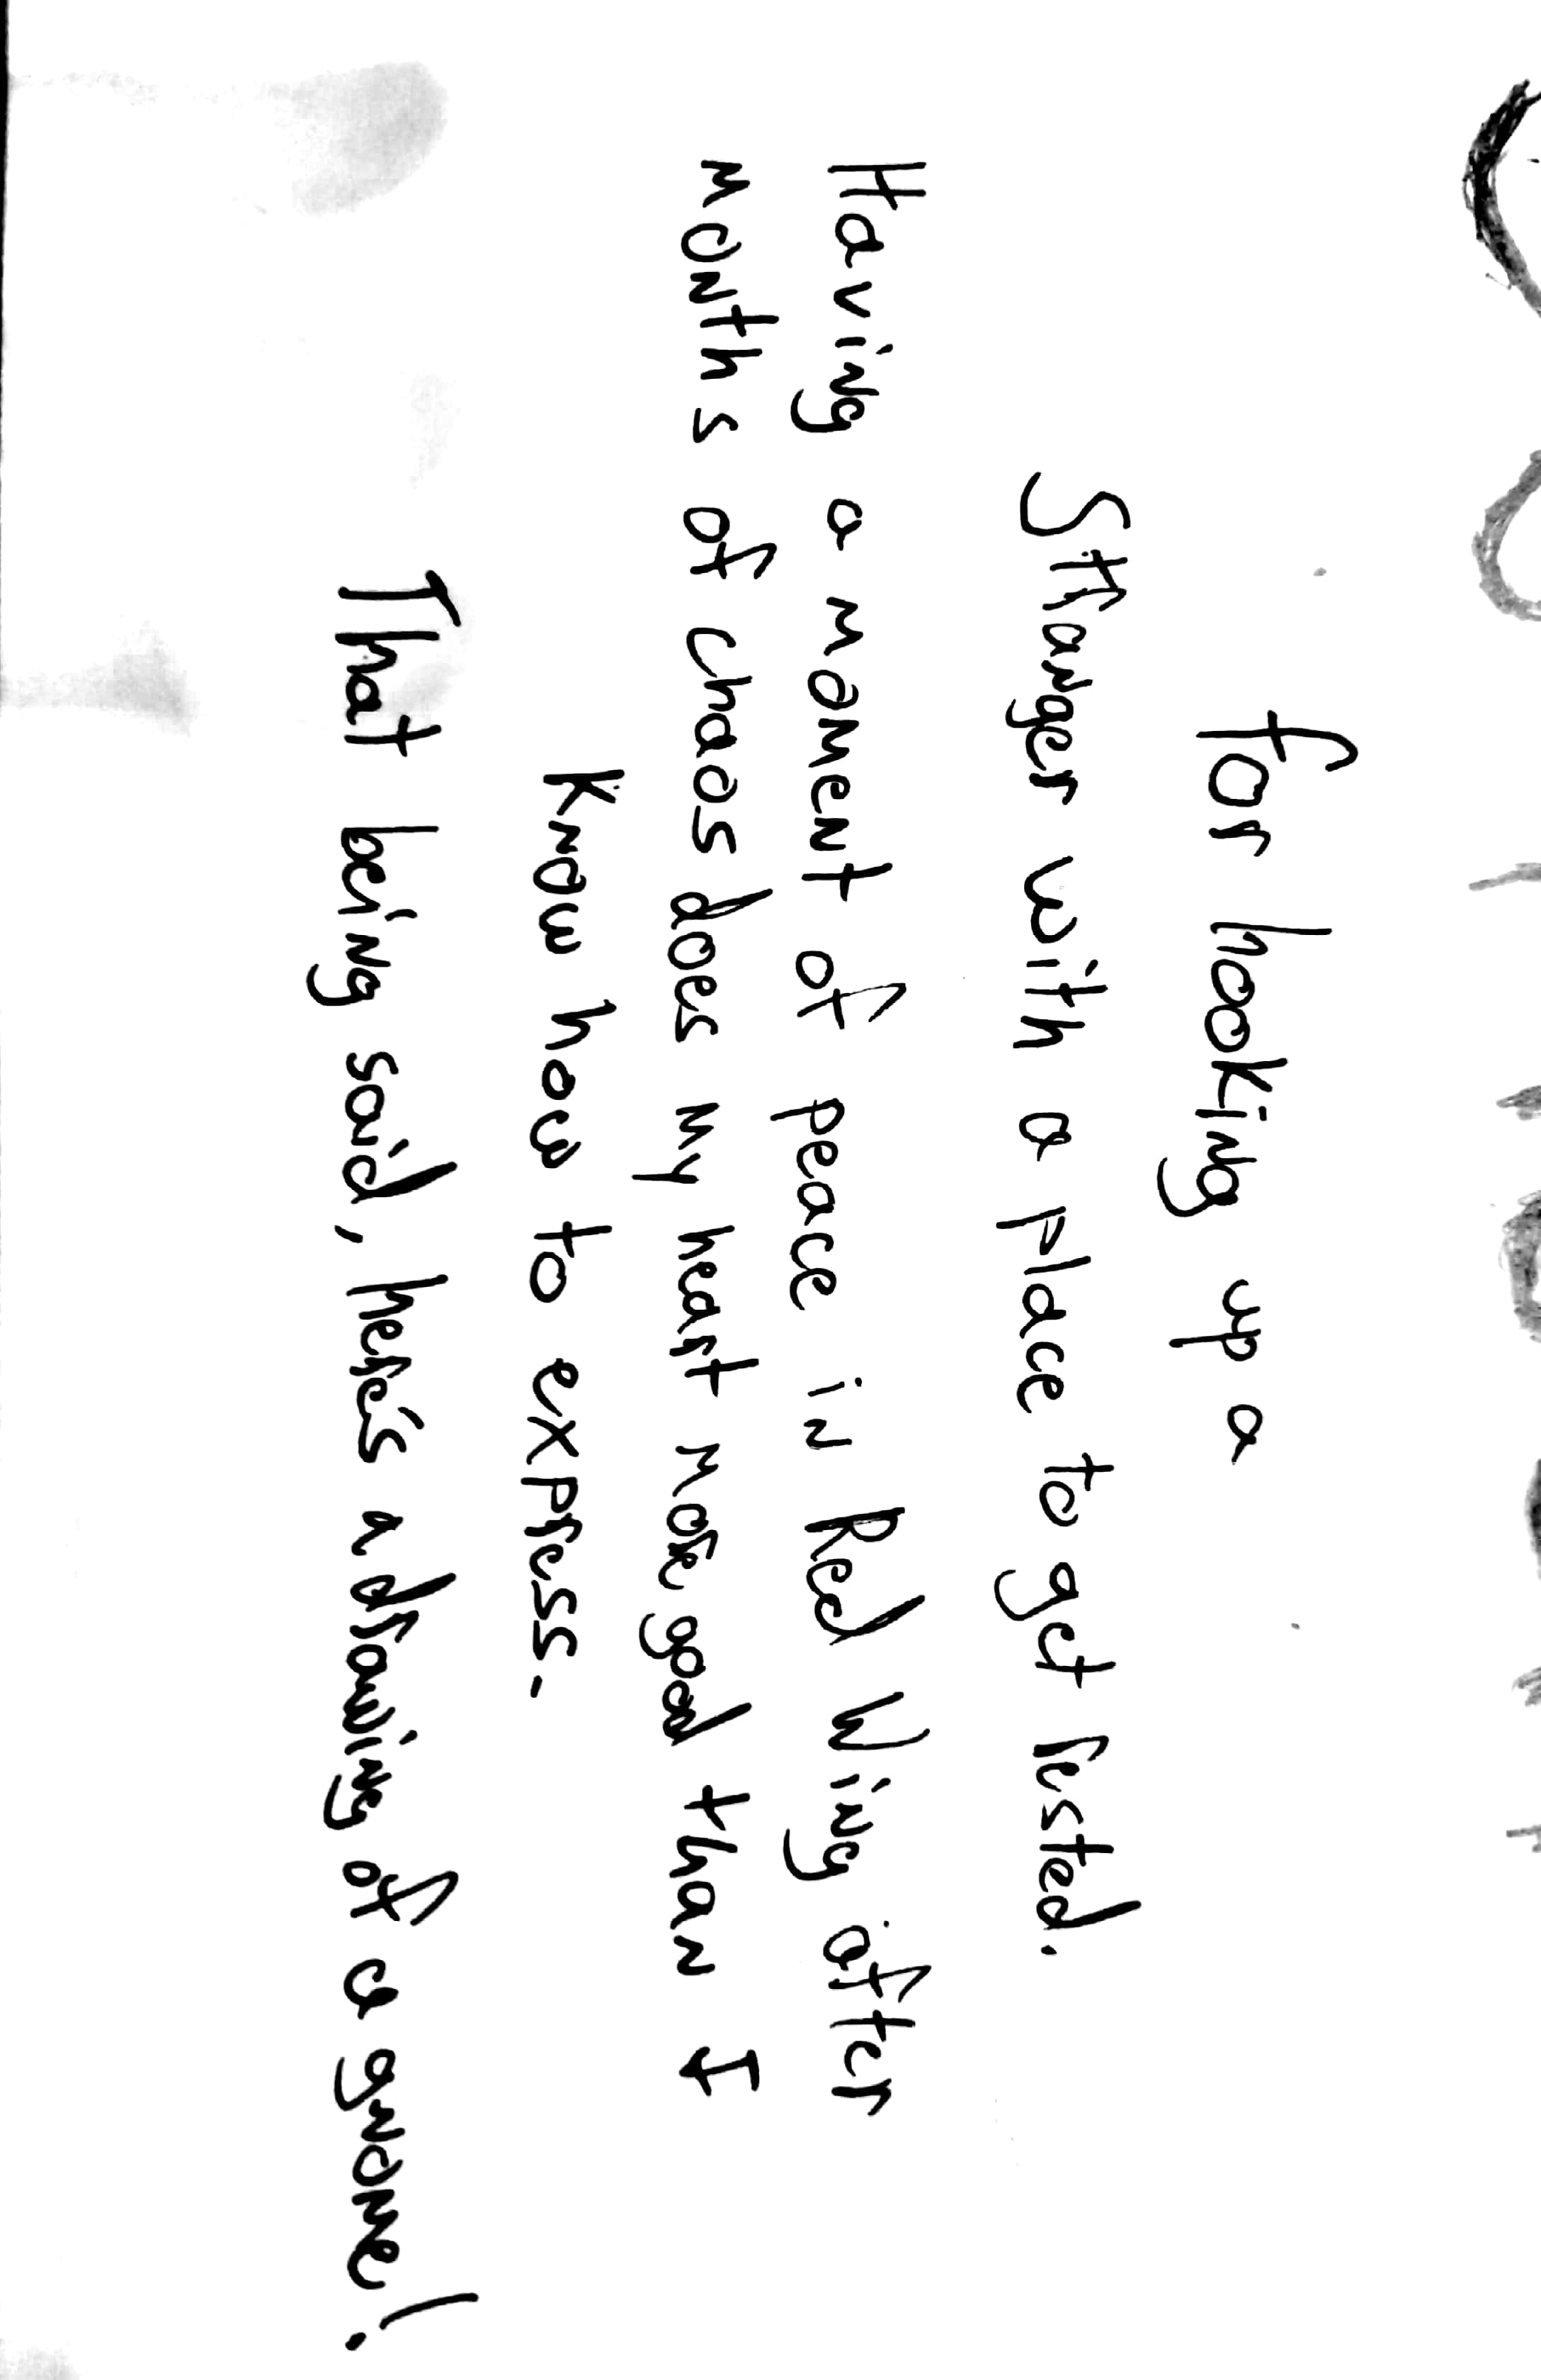 for hooking up a
Stranger with a place to get rested.
Having a moment of peace in Red Wing after
months of chaos does my heart more good than I
Know how to express.
That being said, here's a drawing of a gnome!